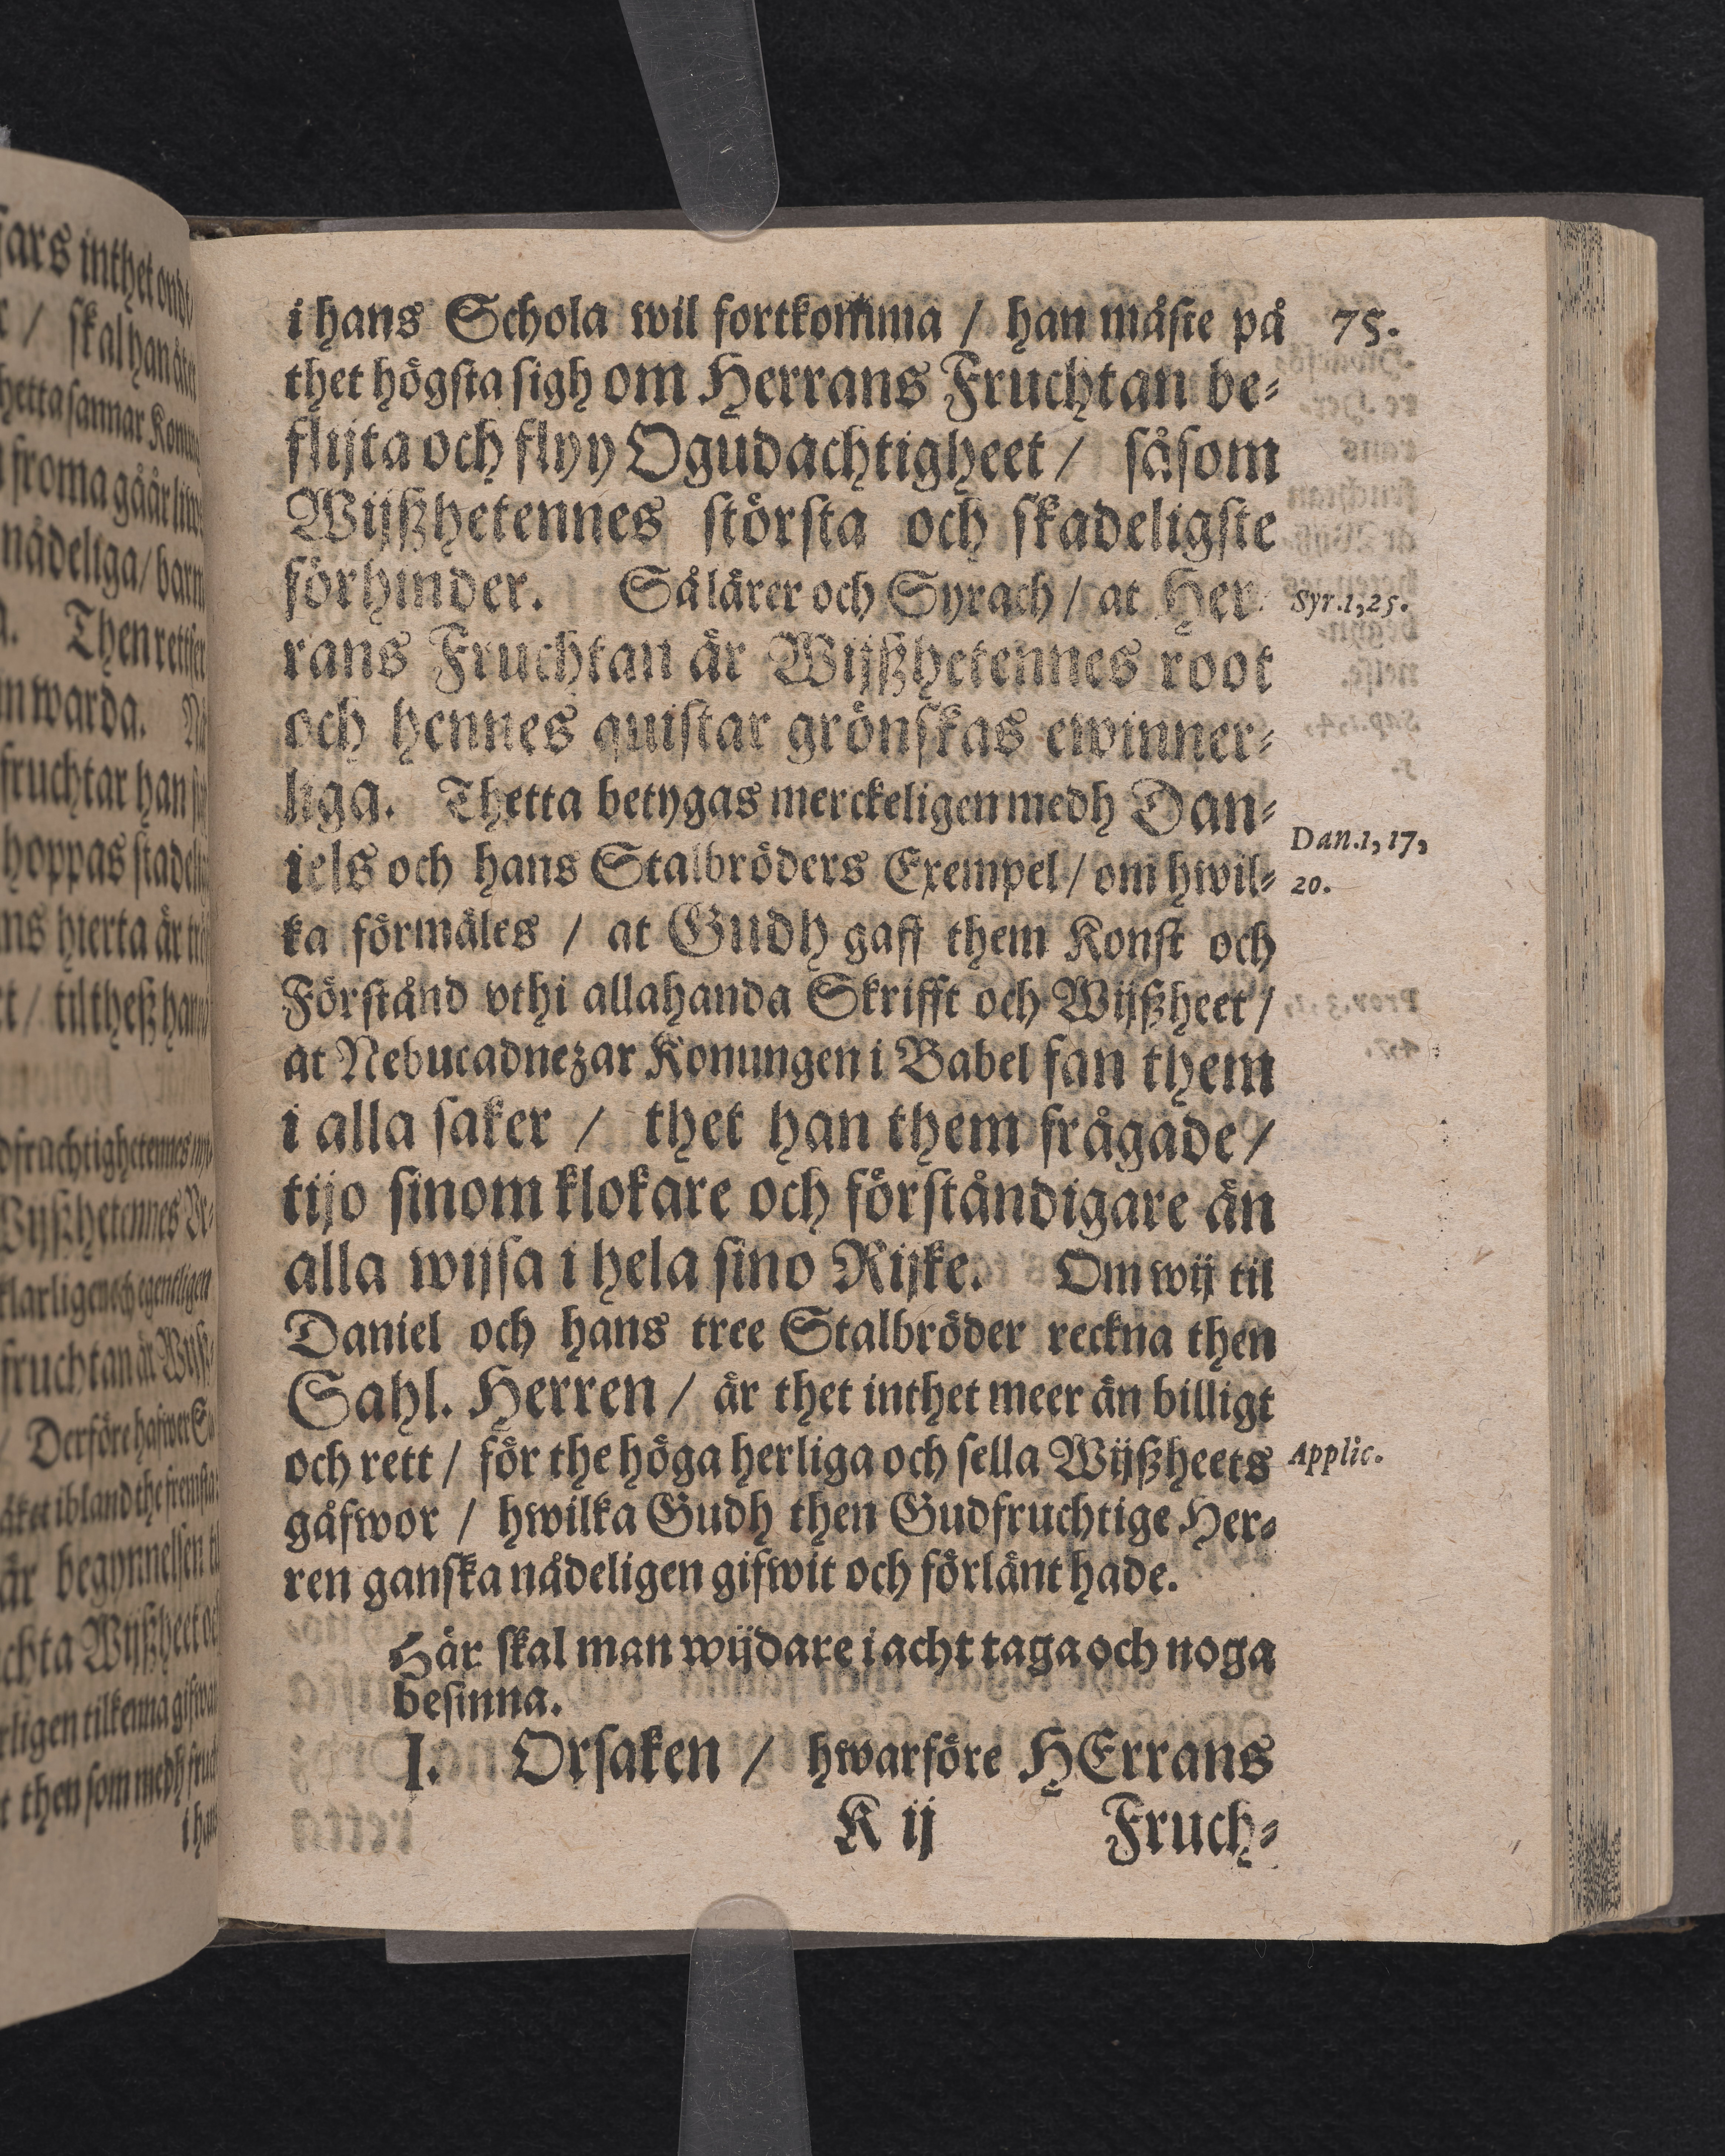 i hans Schola wil fortkomma / han måste på 75.
thet högsta sigh om Herrans Fruchtan be-
flijta och flyy Ogudachtigheet / såsom
Wijßhetennes största och skadeligste
förhinder. Så lärer och Syrach / at Her- Syr.1,25.
rans Fruchtan är Wijßhetennes root
och hennes quistar grönskas ewinner-
liga. Thetta betygas merckeligen medh Dan-
iels och hans Stalbröders Exempel / om hwil- Dan.1,17,
20.
ka förmäles / at Gudh gaff them Konst och
Förstånd vthi allahanda Skrifft och Wijßheet /
at Nebucadnezar Konungen i Babel fan them
i alla saker / thet han them frågade /
tijo sinom klokare och förståndigare än
alla wijsa i hela sino Rijke. Om wij til
Daniel och hans tree Stalbröder reckna then
Sahl. Herren / är thet inthet meer än billigt
och rett / för the höga herliga och sella Wijßheets Applic.
gåfwor / hwilka Gudh then Gudfruchtige Her-
ren ganska nådeligen gifwit och förlänt hade.
Här skal man wijdare i acht taga och noga
besinna.
I. Orsaken / hwarföre HErrans
K ij Fruch-